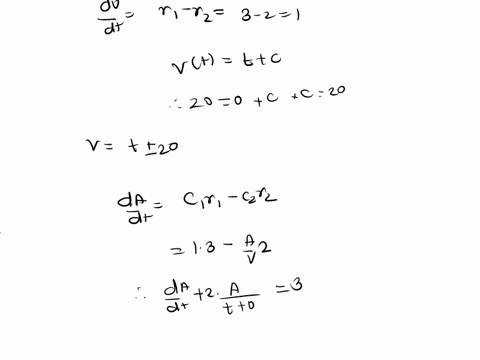 dV/dt = r₁ - r₂ = 3 - 2 = 1
V(t) = t + c
∴ 20 = 0 + c + c = 20
V = t ± 20
dA/dt = C₁r₁ - C₂r₂
= 1·3 - A/V 2
∴ dA/dt + 2· A/(t+0) = 3